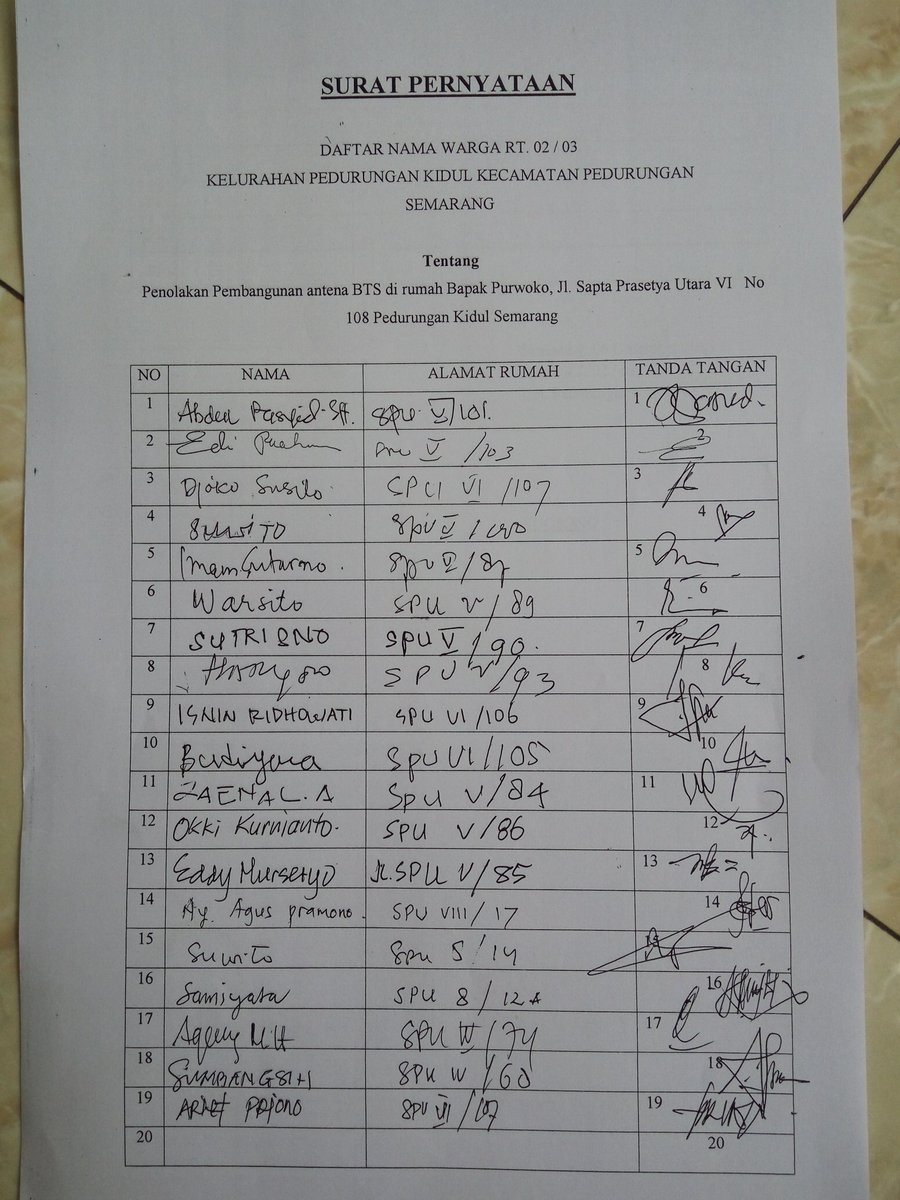 SURAT PERNYATAAN
DAFTAR NAMA WARGA RT. 02 / 03
KELURAHAN PEDURUNGAN KIDUL KECAMATAN PEDURUNGAN
SEMARANG
Tentang
Penolakan Pembangunan antena BTS di rumah Bapak Purwoko, Jl. Sapta Prasetya Utara VI No
108 Pedurungan Kidul Semarang
NO NAMA ALAMAT RUMAH TANDA TANGAN
1 Abdul SPU VI/101. 1
2 Edi V /103 2
3 Djoko Susilo. SPU VI /107 3
4 SUWITO SPU V 4
5 Imam Sutarno. SPU 5
6 Warsito SPU V / 89 6
7 SUTRISNO SPU V / 90. 7
8 SPU V / 93 8
9 ISNIN RIDHOWATI SPU VI /106 9
10 SPU VI / 105 10
11 ZAENAL. A SPU V / 84 11
12 Okki Kurnianto. SPU V / 86 12
13 Eddy Jl. SPU V / 85 13
14 Ny. Agus pramono. SPU VIII / 17 14
15 Suwito SPU 5 / 14 15
16 Samiyata SPU 8 / 12A 16
17 Agung SPU / 74 17
18 SUMBANGSIH SPU IV / 60 18
19 ARIEF PRIONO SPU VI / 107 19
20 20